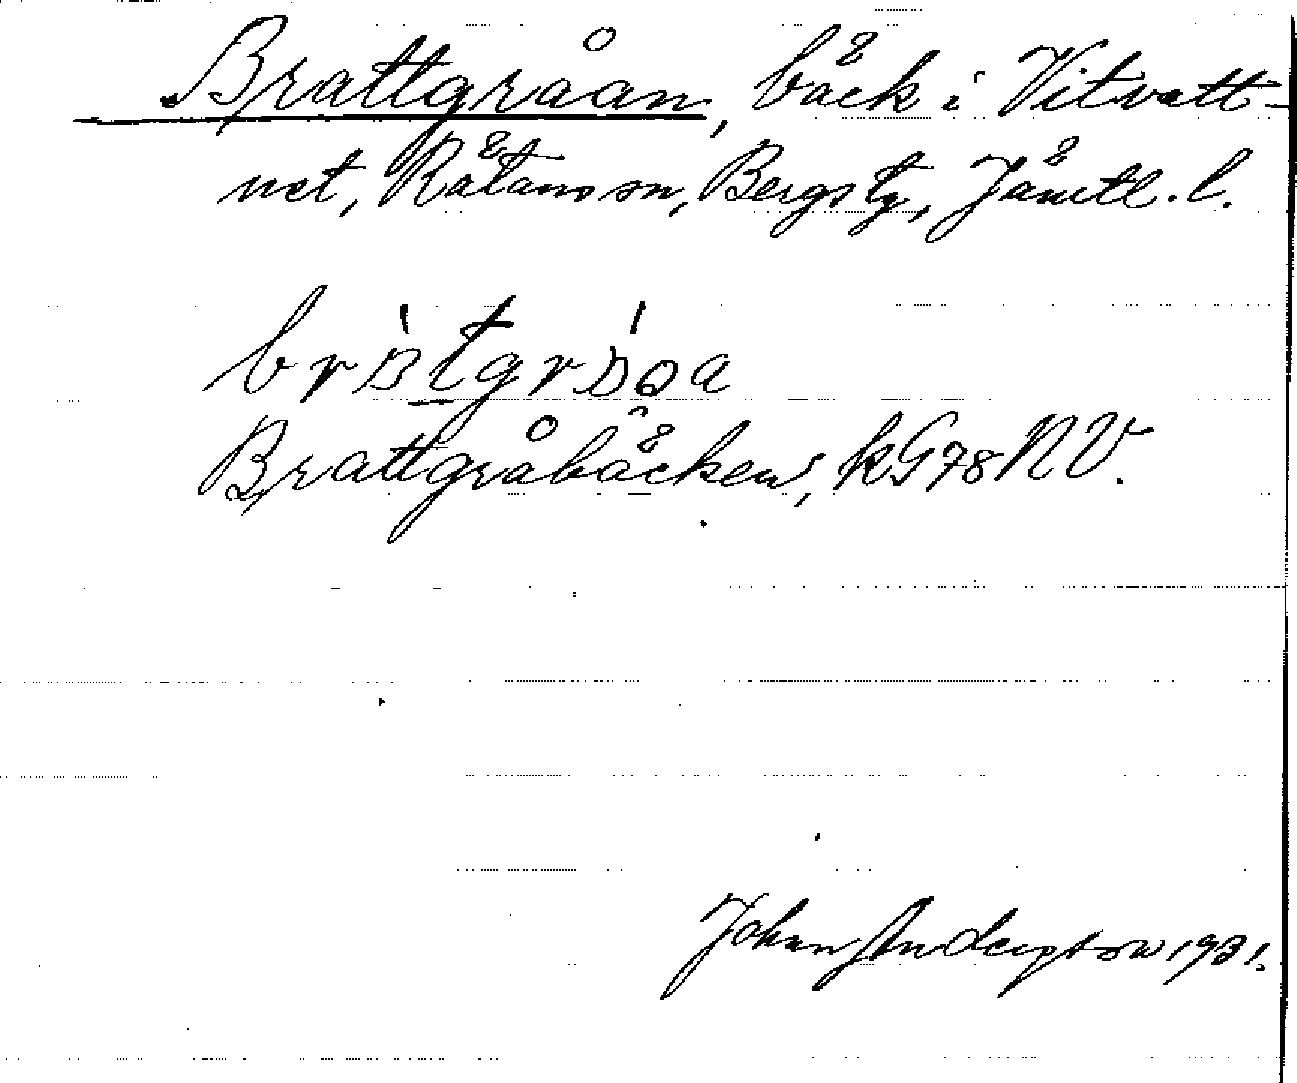 Brattgråån, bäck i Vitvatt-
net, Rätans sn, Bergs tg, Jämtl. l.
Brattgråbäcken, kG78NV.
Johan Anderson 1931.